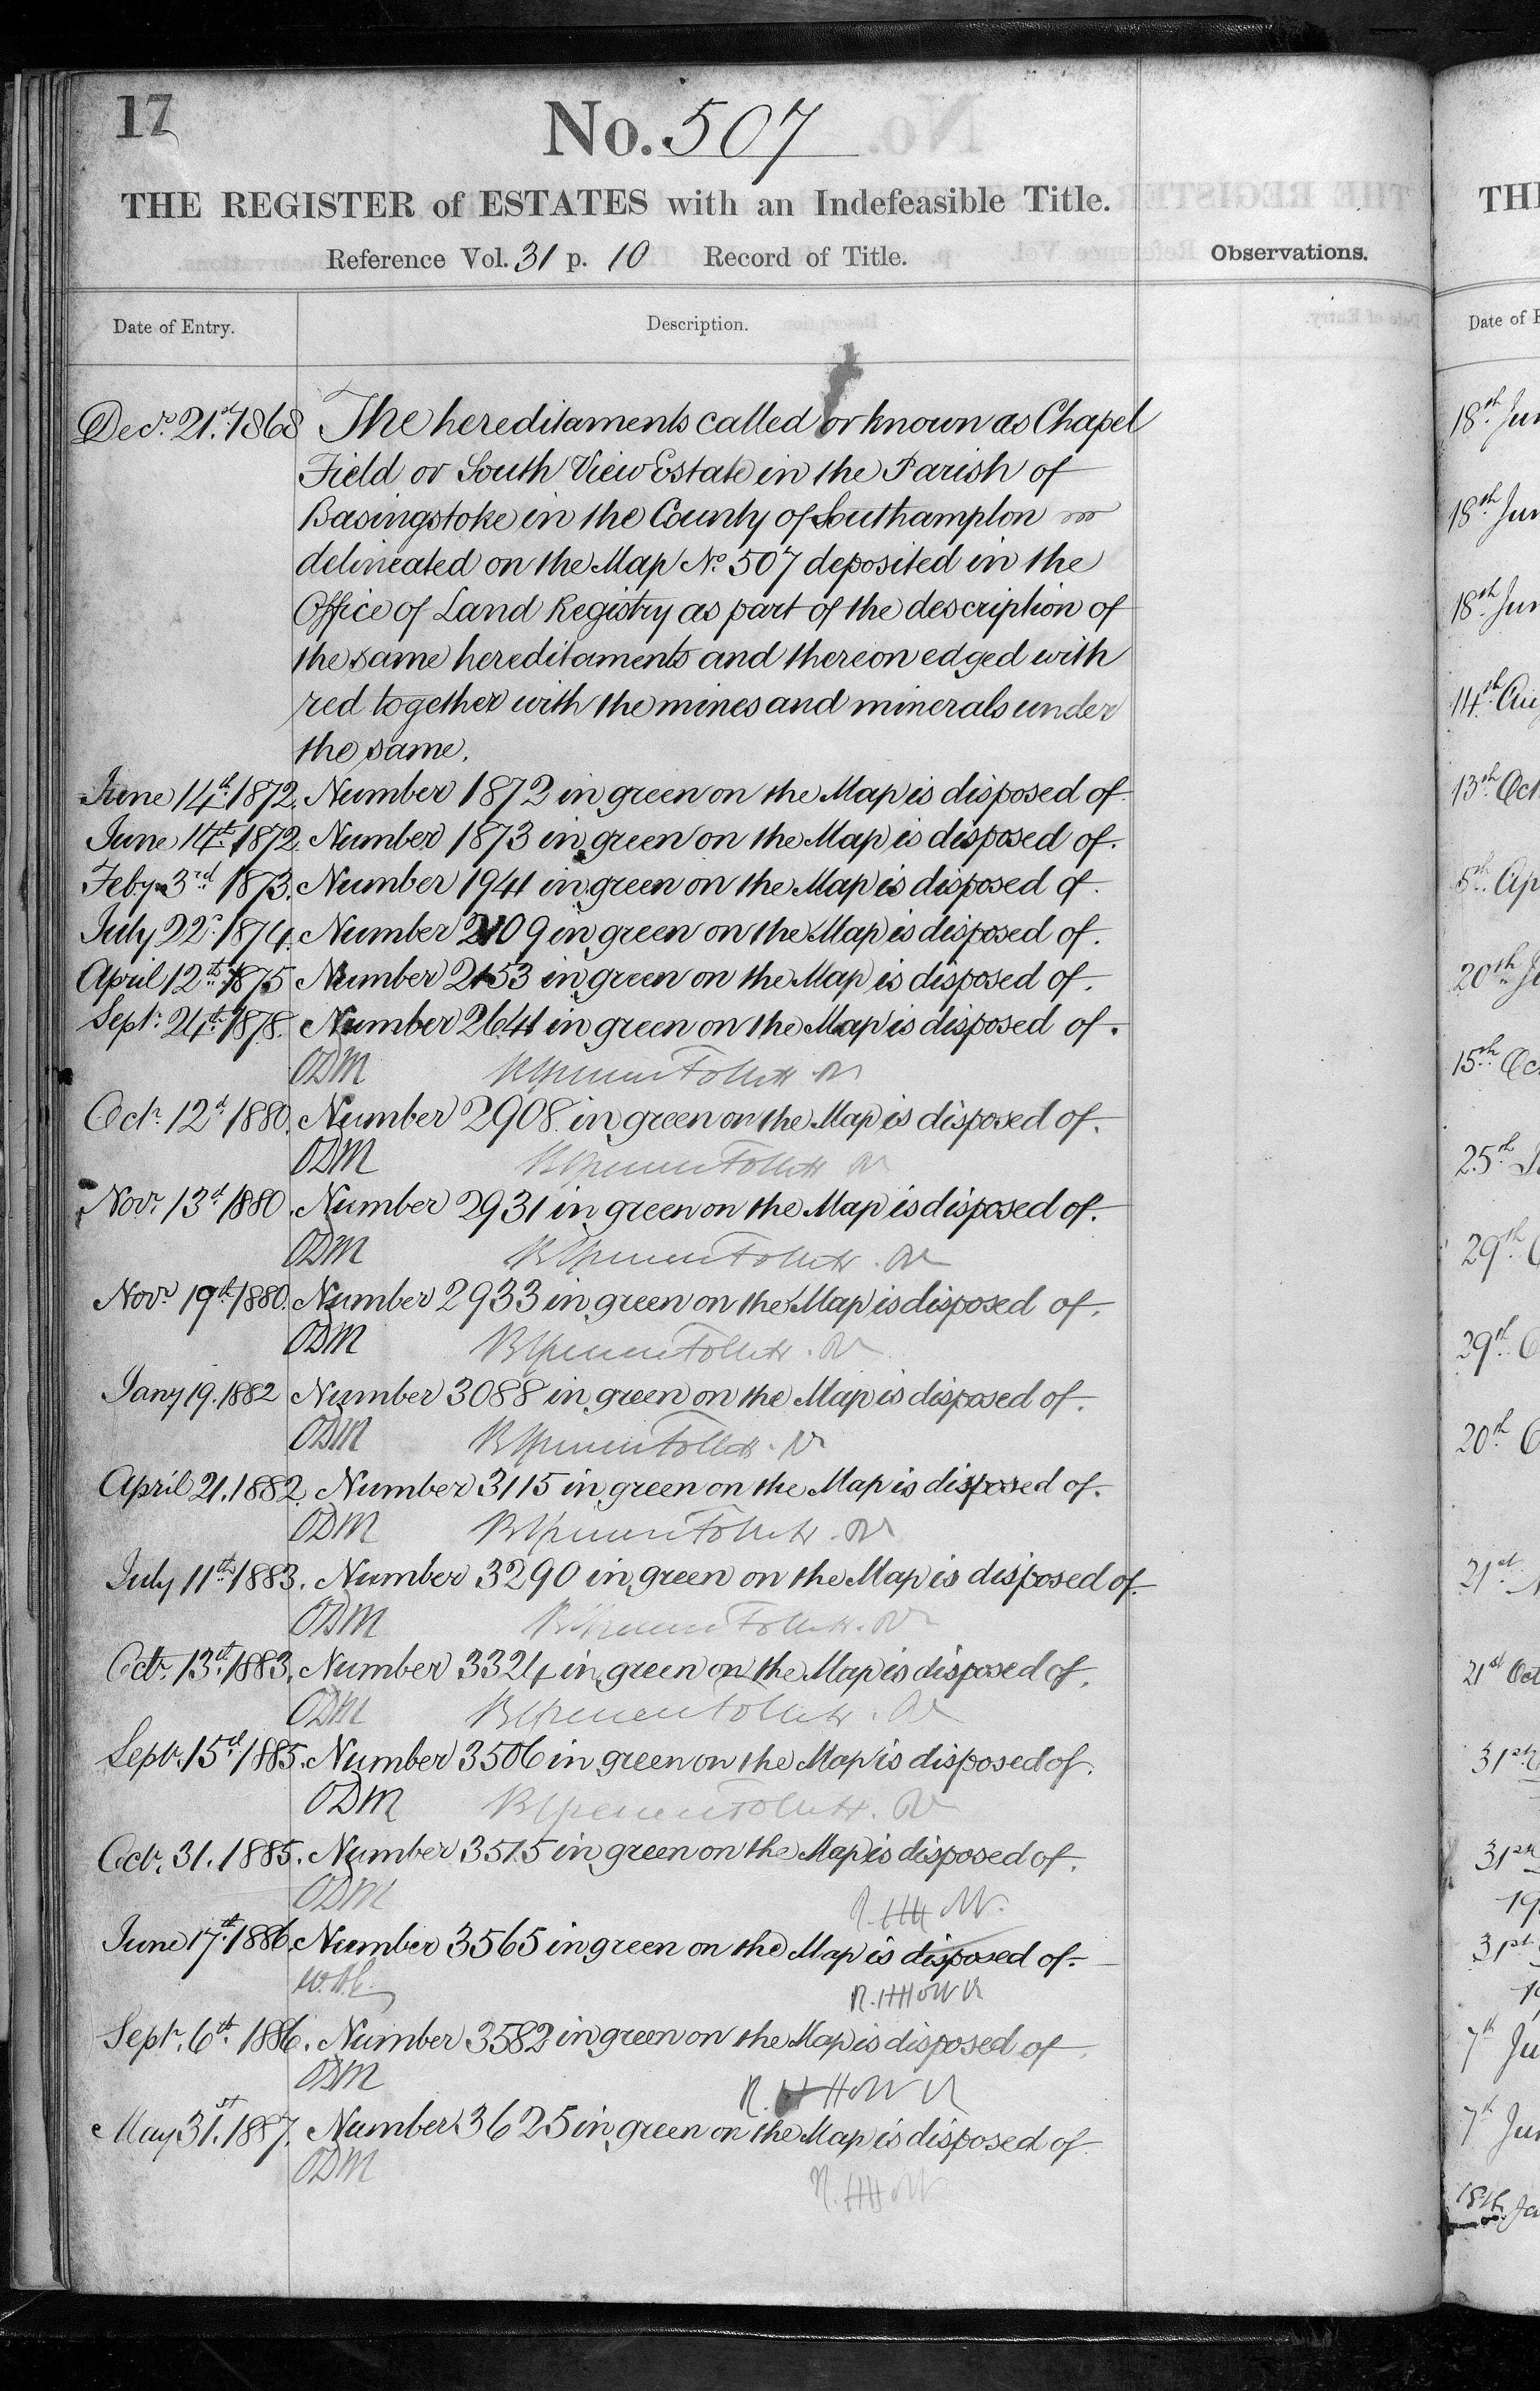 17
No. 507
THE REGISTER of ESTATES with an Indefeasible Title.
Reference Vol. 31 p. 10 Record of Title.
Observations.
Date of Entry.
Description.
Decr. 21st. 1868 The hereditaments called or known as Chapel
Field or South View Estate in the Parish of
Basingstoke in the County of Southampton
delineated on the Map No. 507 deposited in the
Office of Land Registry as part of the description of
the same hereditaments and thereon edged with
red together with the mines and minerals under
the same.
June 14th. 1872. Number 1872 in green on the Map is disposed of.
June 14th. 1872. Number 1873 in green on the Map is disposed of.
Feby. 3rd. 1873. Number 1941 in green on the Map is disposed of.
July 22d. 1874. Number 2109 in green on the Map is disposed of.
April 12th. 1875 Number 2153 in green on the Map is disposed of.
Septr. 24th. 1878. Number 2641 in green on the Map is disposed of.
ODM
Octr. 12th 1880. Number 2908 in green on the Map is disposed of.
ODM
Novr. 13th 1880. Number 2931 in green on the Map is disposed of.
ODM
Novr. 19th 1880. Number 2933 in green on the Map is disposed of.
ODM
Jany 19. 1882 Number 3088 in green on the Map is disposed of.
ODM
April 21. 1882. Number 3115 in green on the Map is disposed of.
ODM
July 11th 1883. Number 3290 in green on the Map is disposed of.
ODM
Octr. 13th. 1883. Number 3324 in green on the Map is disposed of.
ODM
Septr. 15th 1885. Number 3506 in green on the Map is disposed of.
ODM
Octr. 31. 1885. Number 3515 in green on the Map is disposed of.
ODM
June 17th. 1886. Number 3565 in green on the Map is disposed of.
Septr. 6th. 1886. Number 3582 in green on the Map is disposed of.
ODM
May 31st. 1887. Number 3625 in green on the Map is disposed of.
ODM